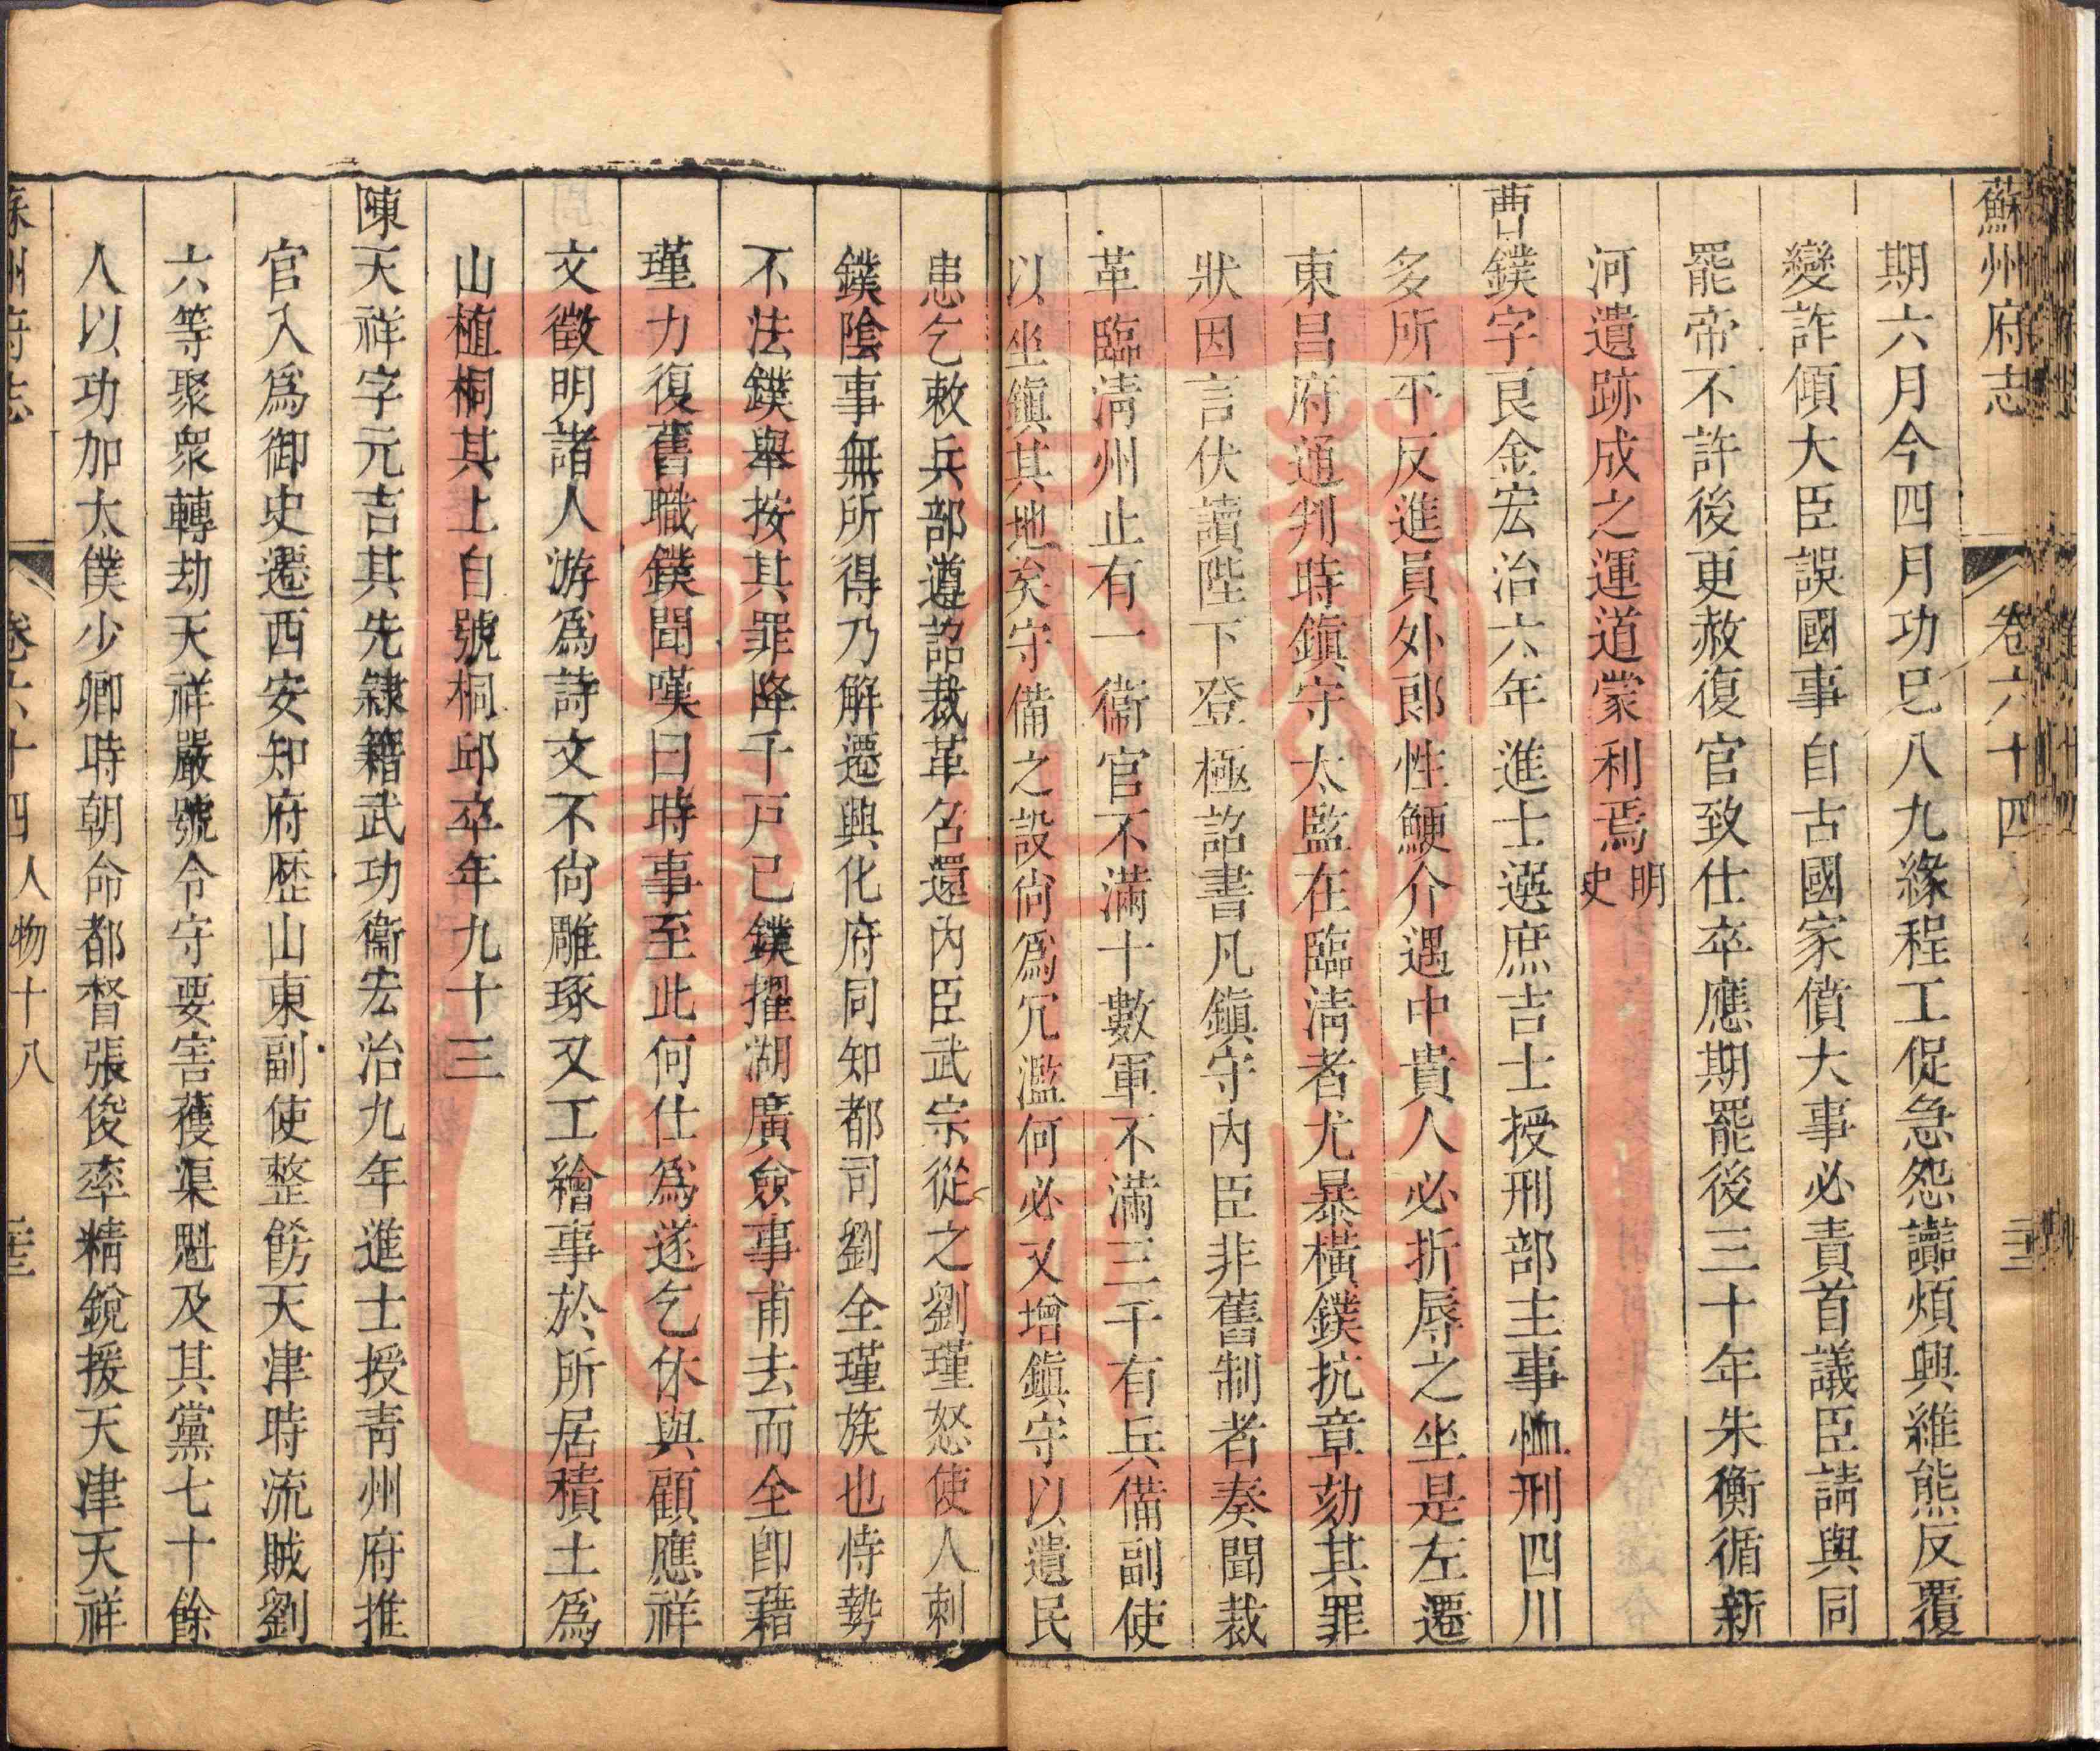 蘇州府志 卷六十四
期六月今四月功已八九緣程工促急怨讟煩興維熊反覆
變詐傾大臣誤國事自古國家僨大事必責首議臣請與同
罷帝不許後更赦復官致仕卒應期罷後三十年朱衡循新
河遺跡成之運道蒙利焉明史
曹鏷字艮金宏治六年進士選庶吉士授刑部主事恤刑四川
多所平反進員外郎性鯁介遇中貴人必折辱之坐是左遷
東昌府通判時鎭守太監在臨淸者尤暴橫鏷抗章劾其罪
狀因言伏讀陛下登極詔書凡鎭守內臣非舊制者奏聞裁
革臨淸州止有一衞官不滿十數軍不滿三千有兵備副使
以坐鎭其地矣守備之設尙爲冗濫何必又增鎭守以遺民
患乞敕兵部遵詔裁革名還內臣武宗從之劉瑾怒使人刺
鏷陰事無所得乃解遷興化府同知都司劉全瑾族也恃勢
不法鏷舉按其罪降千戸已鏷擢湖廣僉事甫去而全卽藉
瑾力復舊職鏷聞嘆曰時事至此何仕爲遂乞休與顧應祥
文徵明諸人游爲詩文不尙雕琢又工繪事於所居積土爲
山植桐其上自號桐邱卒年九十三
陳天祥字元吉其先隸籍武功衞宏治九年進士授靑州府推
官入爲御史遷西安知府歷山東副使整飭天津時流賊劉
六等聚衆轉劫天祥嚴號令守要害獲渠魁及其黨七十餘
人以功加太僕少卿時朝命都督張俊率精銳援天津天祥
蘇州府志 卷六十四人物十八